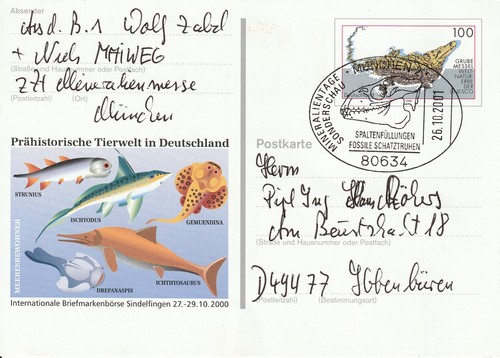 Absender
aus d. B. 1 Wolf Zabel
+ Niels MAIWEG
ZZt Mineralienmesse
(Straße und Hausnummer oder Postfach)
(Postleitzahl) (Ort)
München
Prähistorische Tierwelt in Deutschland
STRUNIUS
ISCHYODUS
GEMUENDINA
MEERESBEWOHNER
DREPANASPIS
ICHTHYOSAURUS
Internationale Briefmarkenbörse Sindelfingen 27.-29.10.2000
100
GRUBE
MESSEL
WELT
NATUR
ERBE
DER
UNESCO
MÜNCHEN
MINERALIENTAGE
SONDERSCHAU
SPALTENFÜLLUNGEN
FOSSILE SCHATZTRUHEN
26.10.2001
80634
Postkarte
Herrn
Dipl Ing
Am 18
(Straße und Hausnummer oder Postfach)
D49477 Ibbenbüren
(Postleitzahl) (Bestimmungsort)